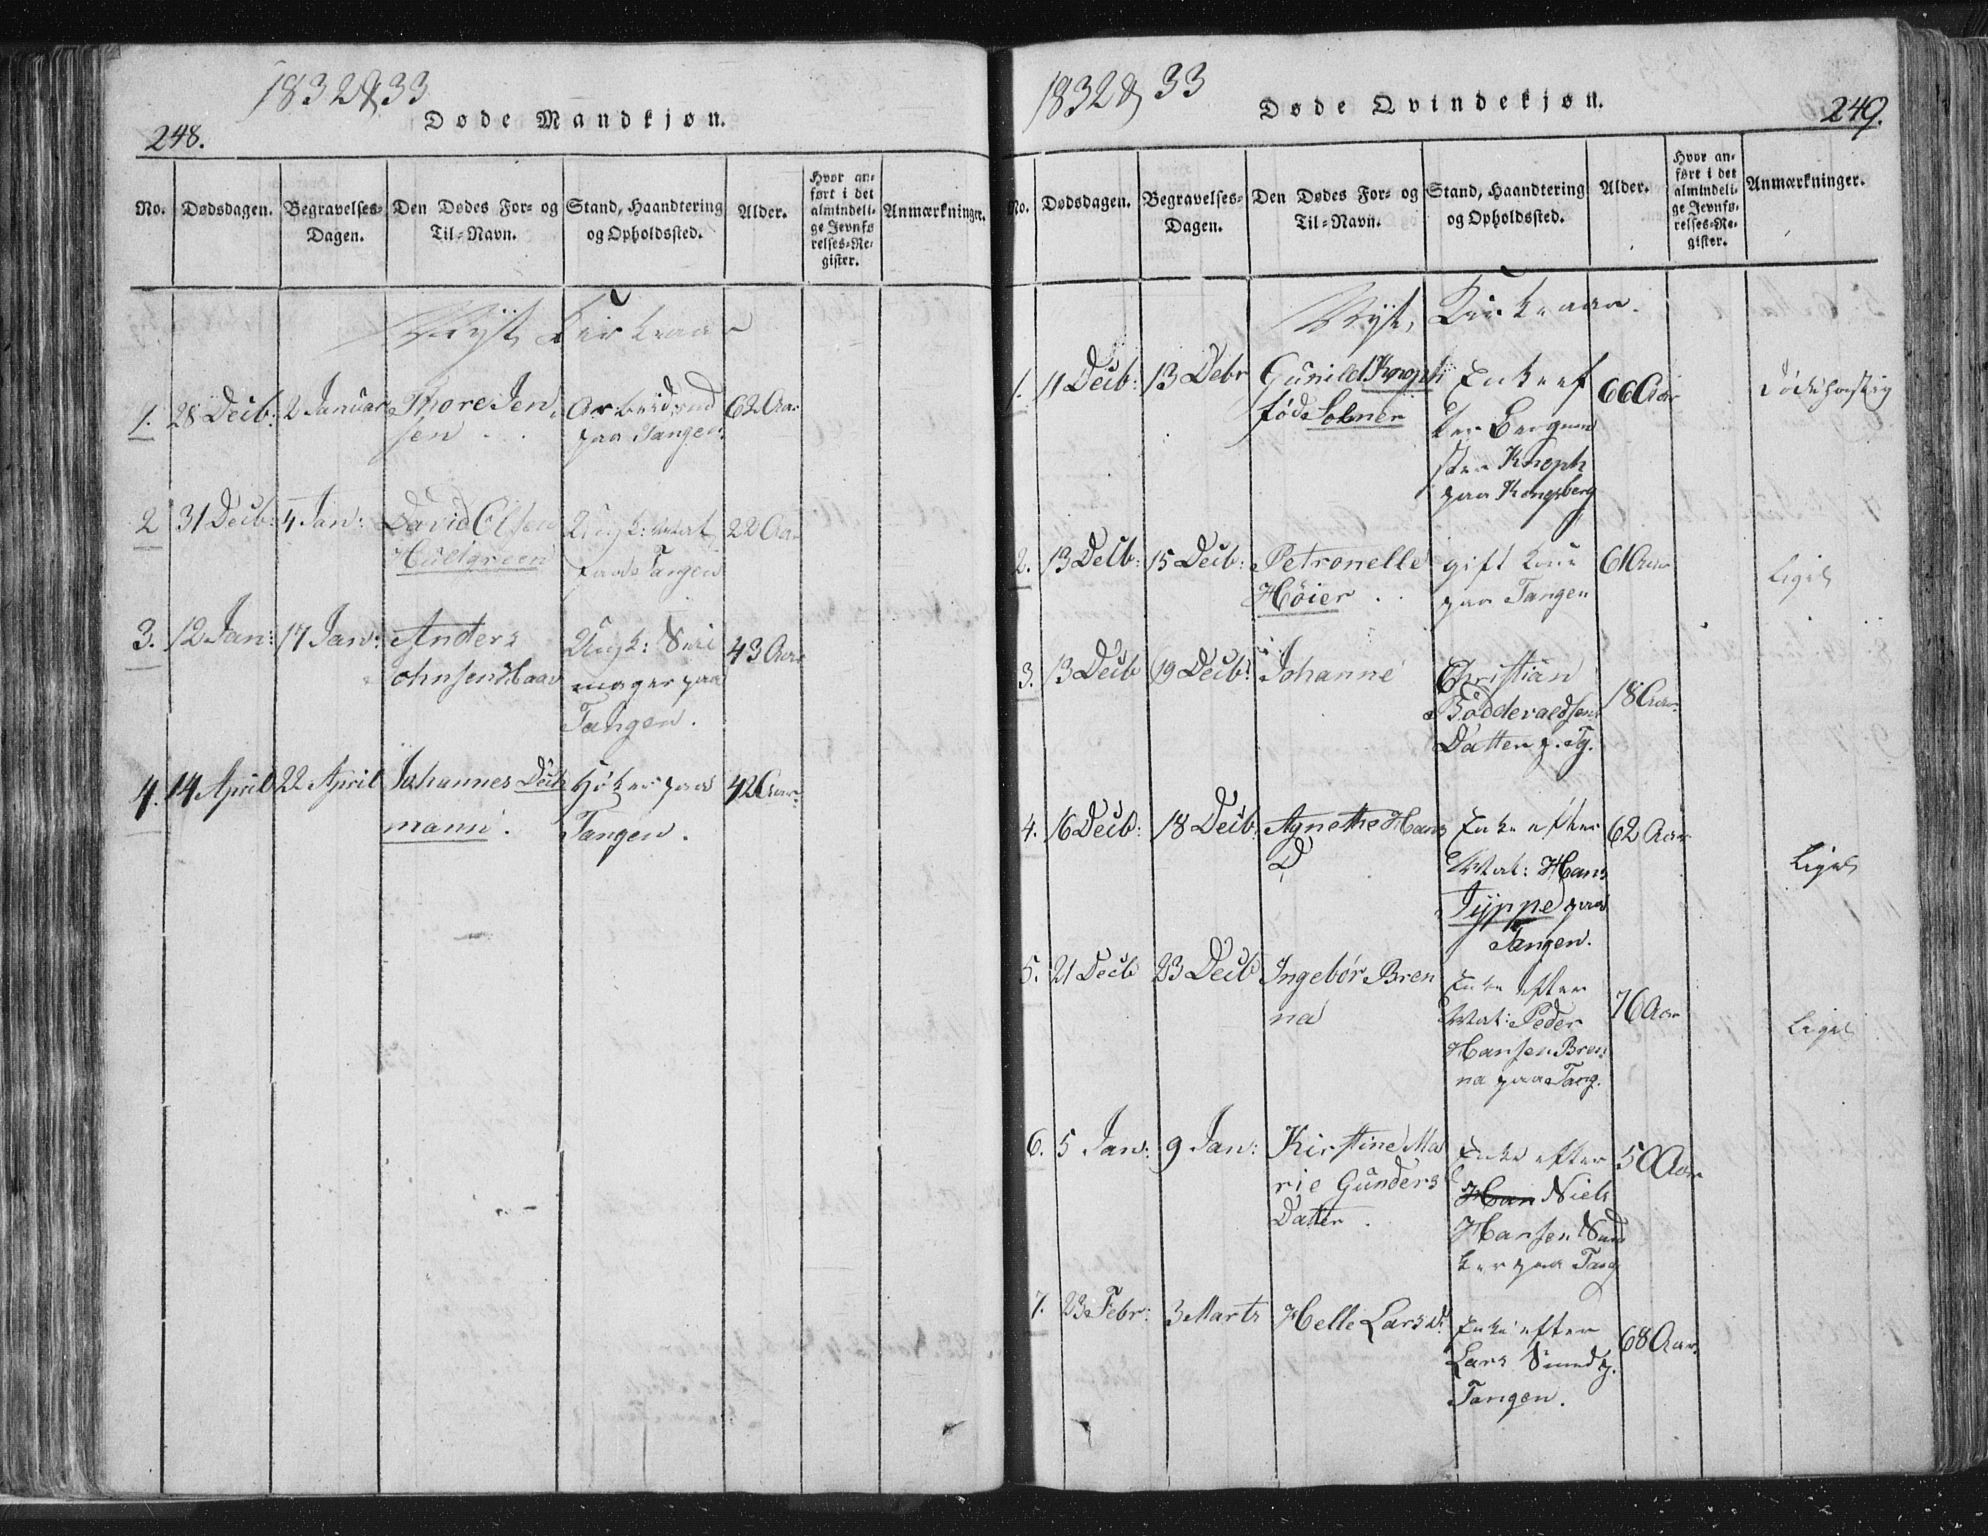 1832 & 33
Døde Mandkjøn.
248.
No.
Dødsdagen.
Begravelses-
Dagen.
Den Dødes For- og
Til-Navn.
Stand, Haandtering
og Opholdssted.
Alder.
Hvor an-
ført i det
almindeli-
ge Jevnfø
relses-Re-
gister.
Anmærkninger.
Nyt Kirkeaar
1. 28 Decb: 2 Januar Thore Jen
sen
Arbeidsmd
paa Tangen
62 Aar
2 31 Decb: 4 Jan: David Olsen
Hultgreen
Ungk: Mat
paa Tangen
22 Aar
3. 12 Jan: 17 Jan: Anders
ohnsen Haav
Ungk:
mager paa
Tangen.
43 Aar
4. 14 April 22 April Johannes Deich
mann.
Høker paa
Tangen.
42 Aar
1832 & 33
Døde Qvindekjøn.
249.
No.
Dødsdagen.
Begravelses-
Dagen.
Den Dødes For- og
Til-Navn.
Stand, Haandtering
og Opholdssted.
Alder.
Hvor an-
ført i det
almindeli-
ge Jevnfø-
relses-Re-
gister.
Anmærkninger.
Nyt Kirkeaar.
1. 11 Decb: 13 Debr Gunild Knoph
fød Solmer
Enke ef
ter Bergme
ster Knoph
paa Kongsberg
66 Aar
Døde hastig
2. 13 Decb: 15 Decb: Petronelle
Høier
gift Kone
paa Tangen
61 Aar
Ligel
3. 13 Decb 19 Decb: Johanne
Christian
Boddevaldsens
Datter p. Tg.
18 Aar
4. 16 Decb: 18 Decb. Agnethe Hans
D
Enke efter
Mat: Hans
Jyppe paa
Tangen.
62 Aar
Ligel
5. 21 Decb 23 Decb Ingebor Bren
na
Enke efter
Mat: Peder
Hansen Bren
na paa Tang.
76 Aar
Ligel
6. 5 Jan: 9 Jan: Kirstine Ma
rie Gunders
Datter
Enke efter
Han Niels
Hansen Snid
ker paa Tang
50 Aar
7. 23 Febr: 3 Marts Helle Larsd:
Enke efter
Lars Smed p.
Tangen.
68 Aar.